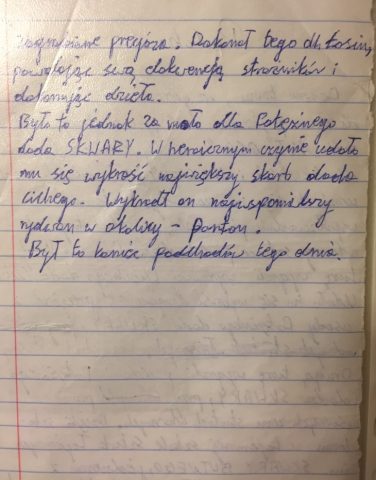 zagrabione pregóza. Dokonał tego dh. Łosiu,
powalając swą elokwencją strażników i
dokonując dzieła.
Było to jednak za mało dla Potężnego
dada SKWARY. W heroicznym czynie udało
mu się wykraść największy skarb dada
cichego. Wykradł on najwspanialszy
rydwan w okolicy - Panton.
Był to koniec podchodów tego dnia.